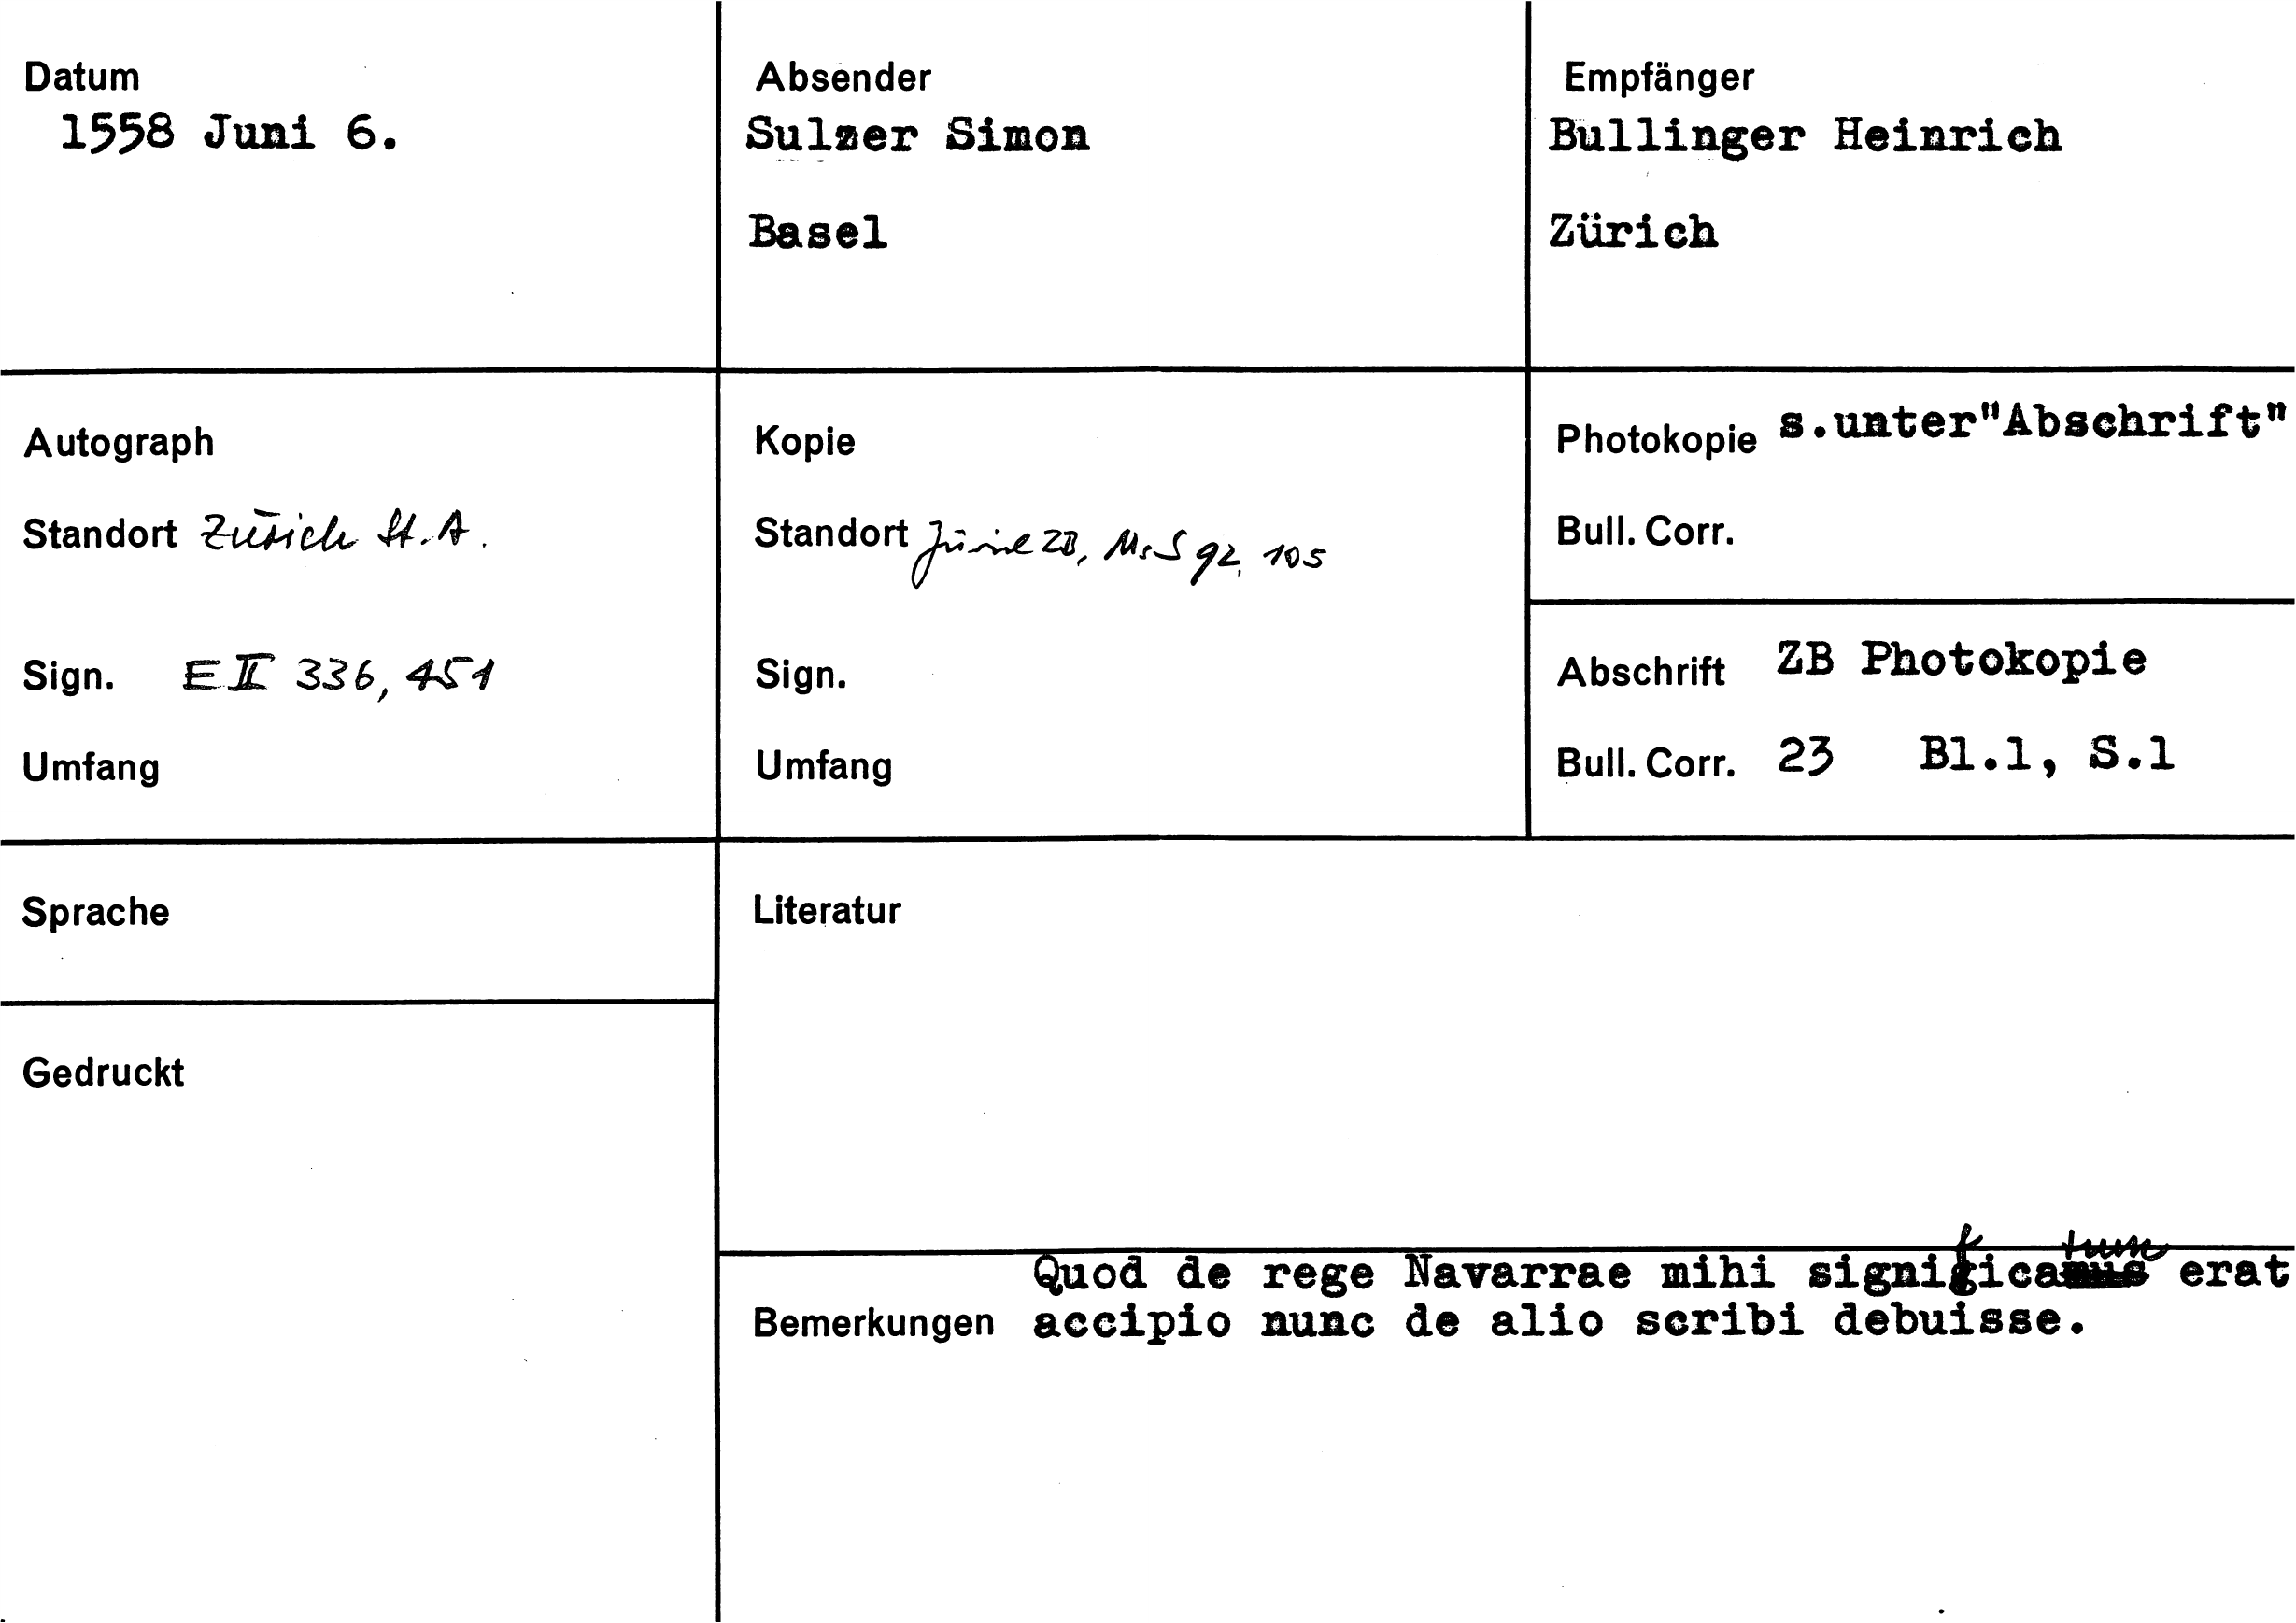 Datum
1558 Juni 6.
Absender
Sulzer Simon
Basel
Empfänger
Bullinger Heinrich
Zürich
Autograph
Standort Zürich St.A.
Sign. E II 336, 451
Umfang
Kopie
Standort Zürich ZB, Ms S 92, 105
Sign.
Umfang
Photokopie s.unter"Abschrift"
Bull. Corr.
Abschrift ZB Photokopie
Bull. Corr. 23 Bl.1, S.1
Sprache
Gedruckt
Literatur
Quod de rege Navarrae mihi significatum erat
Bemerkungen accipio nunc de alio scribi debuisse.